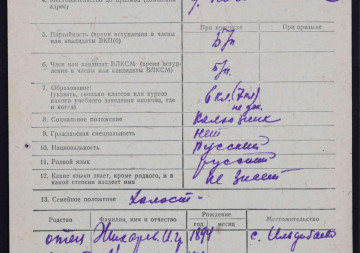 адрес)
При призыве
При призыве
5. Партийность (время вступления в члены
или кандидаты ВКП(б)
б/п
6. Член или кандидат ВЛКСМ (время всту-
пления в члены или кандидаты ВЛКСМ)
б/п.
7. Образование:
(указать, сколько классов или курсов
какого учебного заведения окончил, где
и когда)
6 кл. (7кл)
не ок.
8. Социальное положение
Колхозник
9. Гражданская специальность
нет
10. Национальность
Русский
11. Родной язык
русский
12. Какие языки знает, кроме родного, и в
какой степени владеет ими
не знает
13. Семейное положение Холост -
Родство
Фамилия, имя и отчество
Рождение
Местожительство
год
месяц
отец
1894
с.